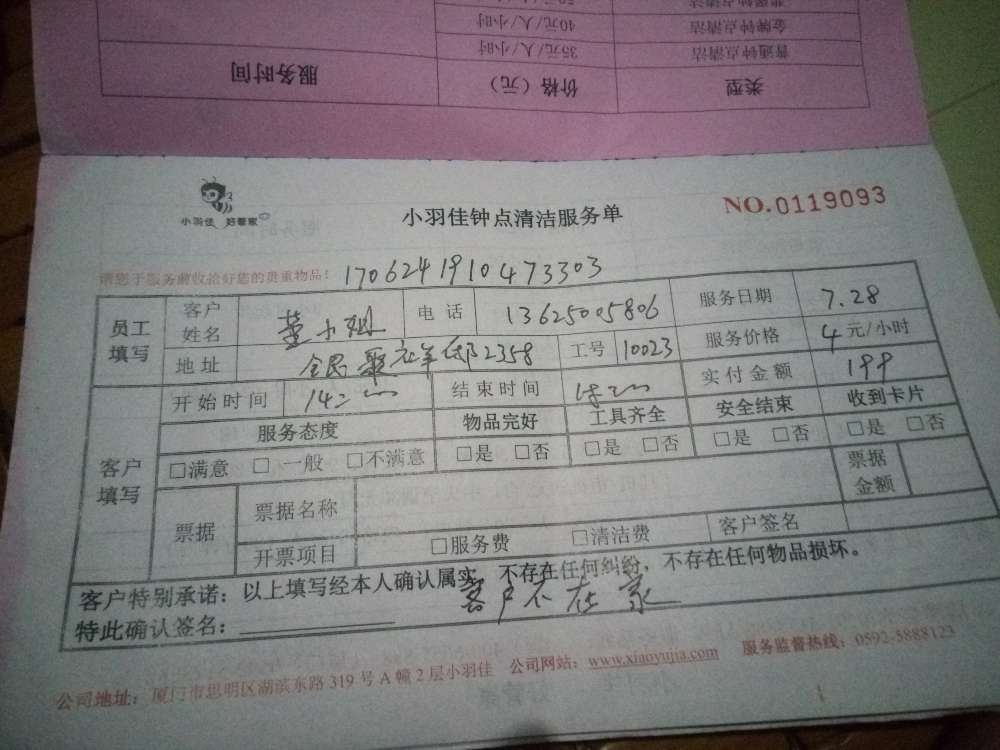 类型 价格（元） 服务时间
普通钟点清洁 35元/人/小时
金牌钟点清洁 40元/人/小时
小羽佳 好管家
小羽佳钟点清洁服务单
NO.0119093
请您于服务前收拾好您的贵重物品！ 1706241910473303
员工填写 客户姓名 董小姐 电话 13625005806 服务日期 7.28
地址 2358 工号 10023 服务价格 4元/小时
客户填写 开始时间 14 结束时间 实付金额 199
服务态度 物品完好 工具齐全 安全结束 收到卡片
□满意 □一般 □不满意 □是 □否 □是 □否 □是 □否 □是 □否
票据 票据名称 票据金额
开票项目 □服务费 □清洁费 客户签名
客户特别承诺：以上填写经本人确认属实，不存在任何纠纷，不存在任何物品损坏。
特此确认签名： 客户不在家
公司地址：厦门市思明区湖滨东路319号A幢2层小羽佳 公司网站：www.xiaoyujia.com 服务监督热线：0592-5888123